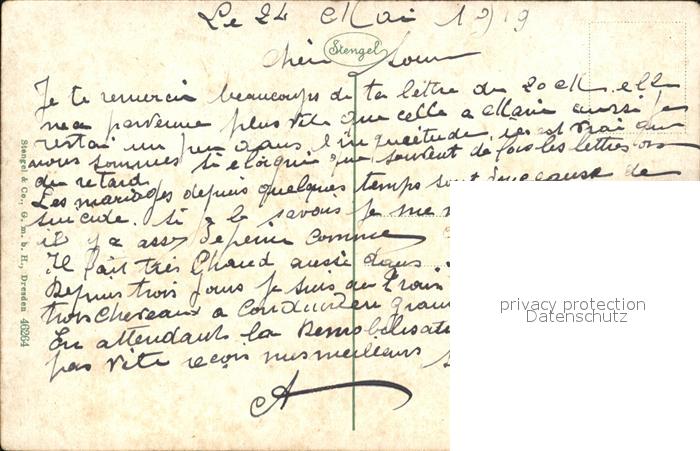 Le 24 Mai 1919
Stengel
Chère Soeur
Je te remercie beaucoups de ta lettre du 20 M. elle
m'ea parvenue plus vite que celle a Marie aussi je
restai un peu dans l'inquiétude. ces est vrai que
nous sommes si eloignie que souvent de fois les lettres ons
du retard.
Les mariages depuis quelques temps sont cause de
suicide. si a le savois je me
il y a assez de peine comme
Il fait très Chaud aussi dans
Depuis trois jours je suis au Train
trois chevaux a conduire
En attendant la Demobilisation
pas vite reçois mes meilleurs
A
Stengel & Co., G. m. b. H., Dresden 46264
privacy protection
Datenschutz